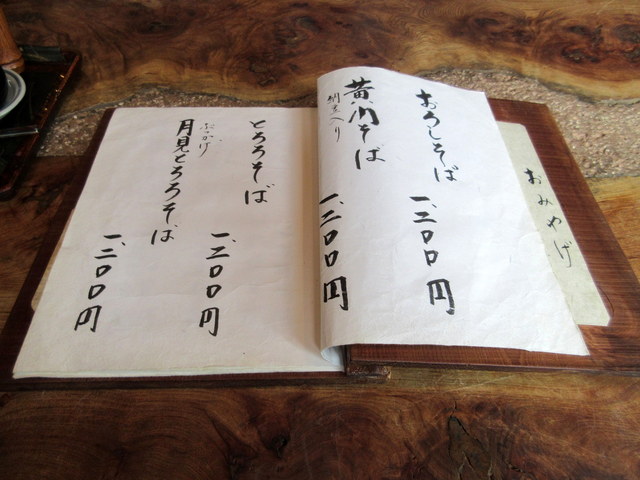 おみやげ
おろしそば
一、二〇〇円
黄門そば
納豆入り
一、二〇〇円
とろろそば
一、二〇〇円
ぶっかけ
月見とろろそば
一、二〇〇円